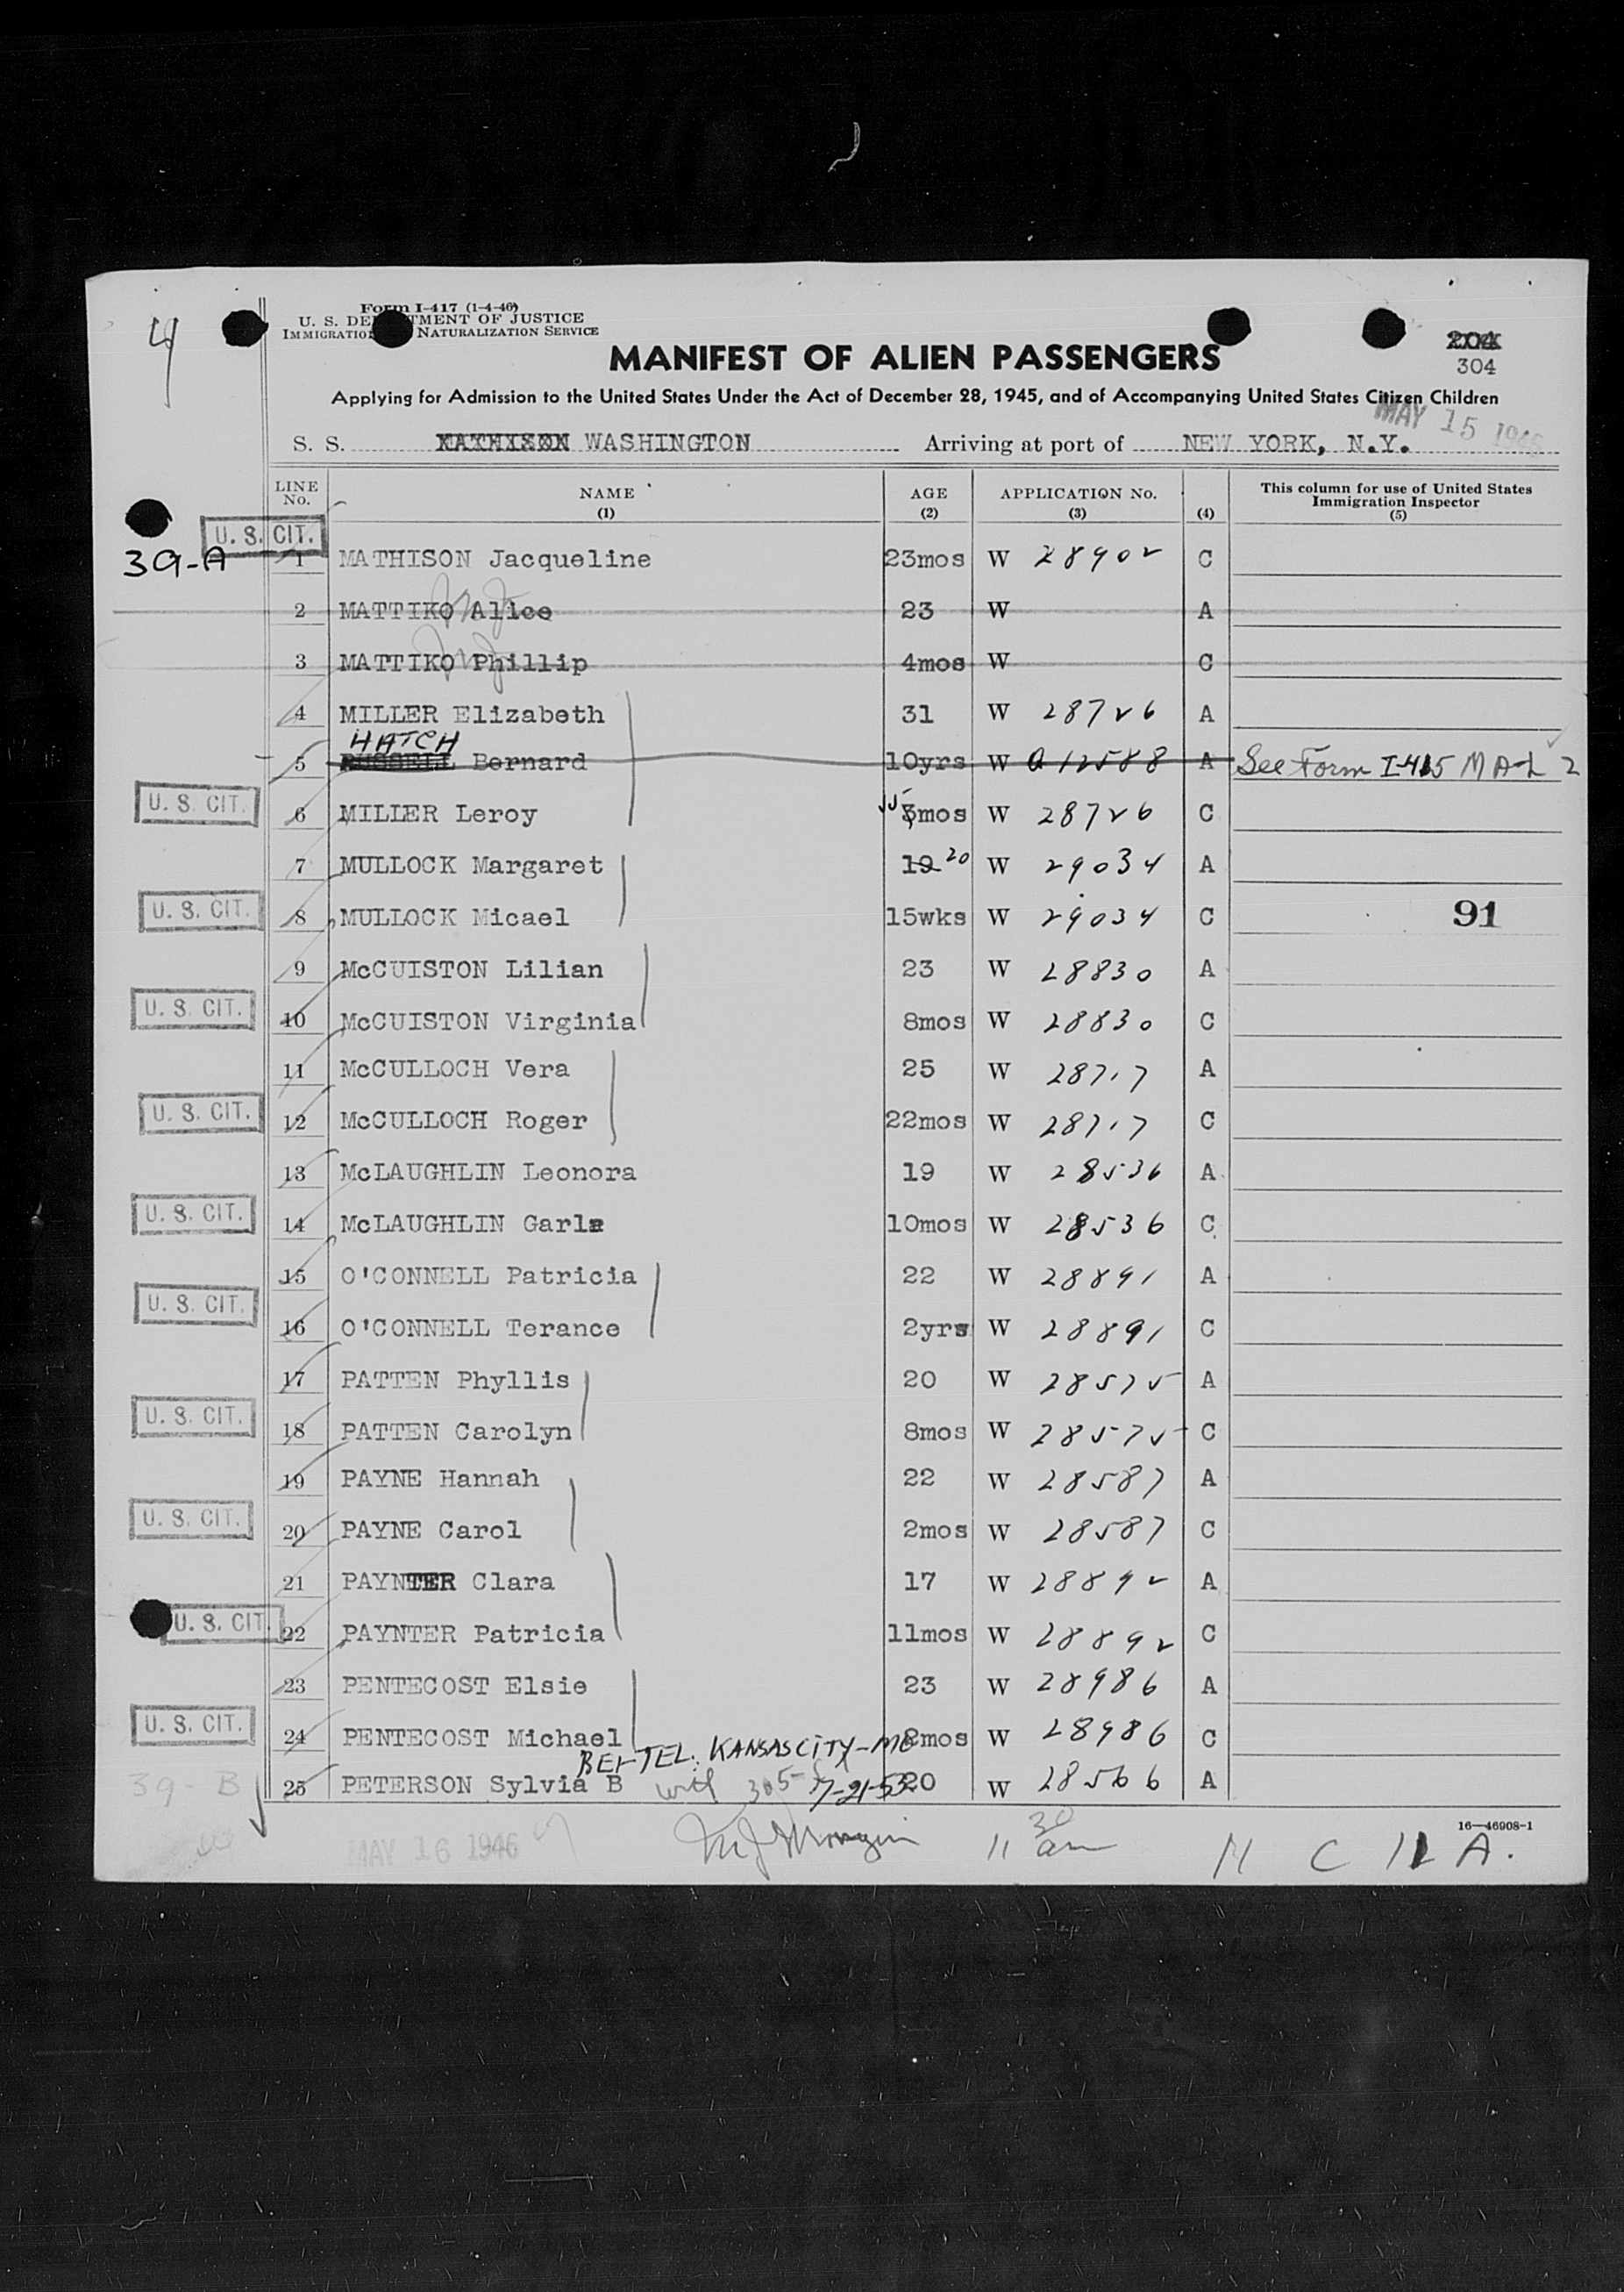 4
Form I-417 (1-4-46)
U. S. DE TMENT OF JUSTICE
IMMIGRATIO NATURALIZATION SERVICE
MANIFEST OF ALIEN PASSENGERS
204
304
Applying for Admission to the United States Under the Act of December 28, 1945, and of Accompanying United States Citizen Children
MAY 15 1946
S. S. MATHISON WASHINGTON Arriving at port of NEW YORK, N.Y.
LINE No. NAME (1) AGE (2) APPLICATION No. (3) (4) This column for use of United States Immigration Inspector (5)
U. S. CIT.
39-A 1 MATHISON Jacqueline 23mos W 28902 C
2 MATTIKO Alice 23 W A
3 MATTIKO Phillip 4mos W C
4 MILLER Elizabeth 31 W 28726 A
HATCH
5 RUSSELL Bernard 10yrs W a 12588 A See Form I-415 M A-L 2
U. S. CIT. 6 MILLER Leroy mos W 28726 C
7 MULLOCK Margaret 19 20 W 29034 A
U. S. CIT. 8 MULLOCK Micael 15wks W 29034 C 91
9 McCUISTON Lilian 23 W 28830 A
U. S. CIT. 10 McCUISTON Virginia 8mos W 28830 C
11 McCULLOCH Vera 25 W 28717 A
U. S. CIT. 12 McCULLOCH Roger 22mos W 28717 C
13 McLAUGHLIN Leonora 19 W 28536 A
U. S. CIT. 14 McLAUGHLIN 10mos W 28536 C
15 O'CONNELL Patricia 22 W 28891 A
U. S. CIT. 16 O'CONNELL Terance 2yrs W 28891 C
17 PATTEN Phyllis 20 W 28575 A
U. S. CIT. 18 PATTEN Carolyn 8mos W 28575 C
19 PAYNE Hannah 22 W 28587 A
U. S. CIT. 20 PAYNE Carol 2mos W 28587 C
21 PAYNTER Clara 17 W 28892 A
U. S. CIT. 22 PAYNTER Patricia 11mos W 28892 C
23 PENTECOST Elsie 23 W 28986 A
U. S. CIT. 24 PENTECOST Michael 8mos W 28986 C
KANSAS CITY-MO
39-B 25 PETERSON Sylvia B with 305- 7-21-53 20 W 28566 A
16—46908-1
MAY 16 1946 11 30 am 11 C 12 A.